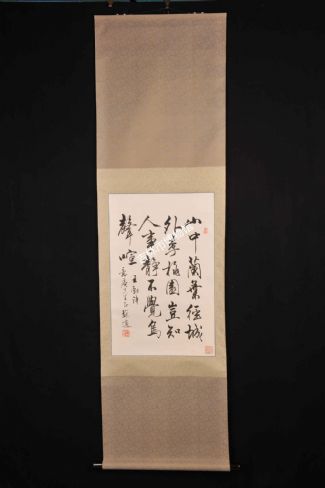 山中蘭葉徑城
外李桃園豈知
人事靜不覺鳥
聲喧
王勃詩